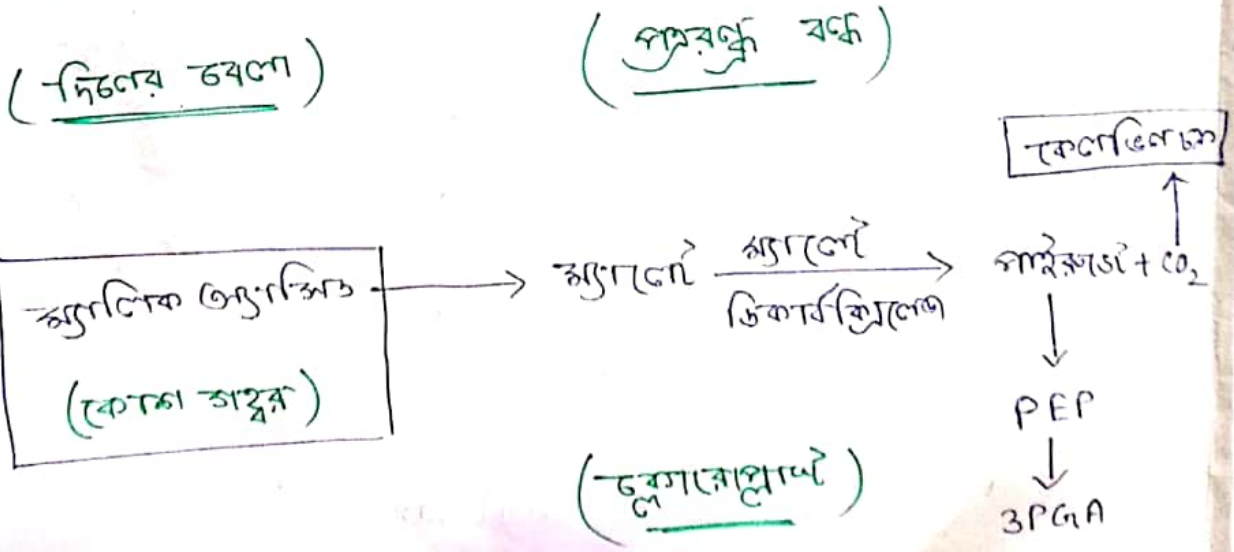 (দিনের বেলা)
(পত্ররন্ধ্র বন্ধ)
কেলভিন চক্র
ম্যালিক অ্যাসিড
(কোশ গহ্বর)
ম্যালেট
ম্যালেট
ডিকার্বক্সিলেজ
পাইরুভেট + CO₂
PEP
3PGA
(ক্লোরোপ্লাস্ট)